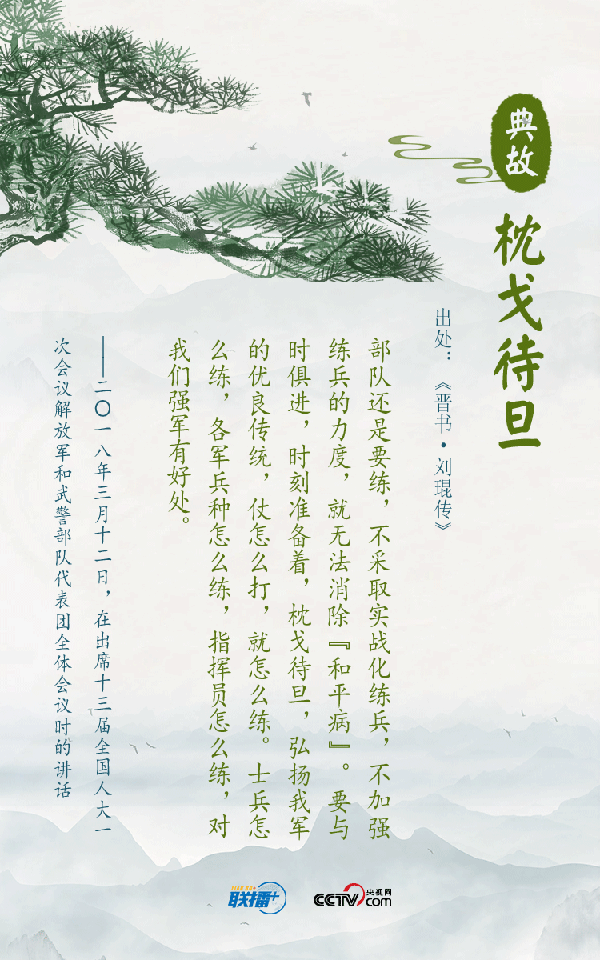 典故
枕戈待旦
出处：《晋书·刘琨传》
部队还是要练，不采取实战化练兵，不加强
练兵的力度，就无法消除『和平病』。要与
时俱进，时刻准备着，枕戈待旦，弘扬我军
的优良传统，仗怎么打，就怎么练。士兵怎
么练，各军兵种怎么练，指挥员怎么练，对
我们强军有好处。
——二〇一八年三月十二日，在出席十三届全国人大一
次会议解放军和武警部队代表团全体会议时的讲话
联播+
CCTV.com 央视网